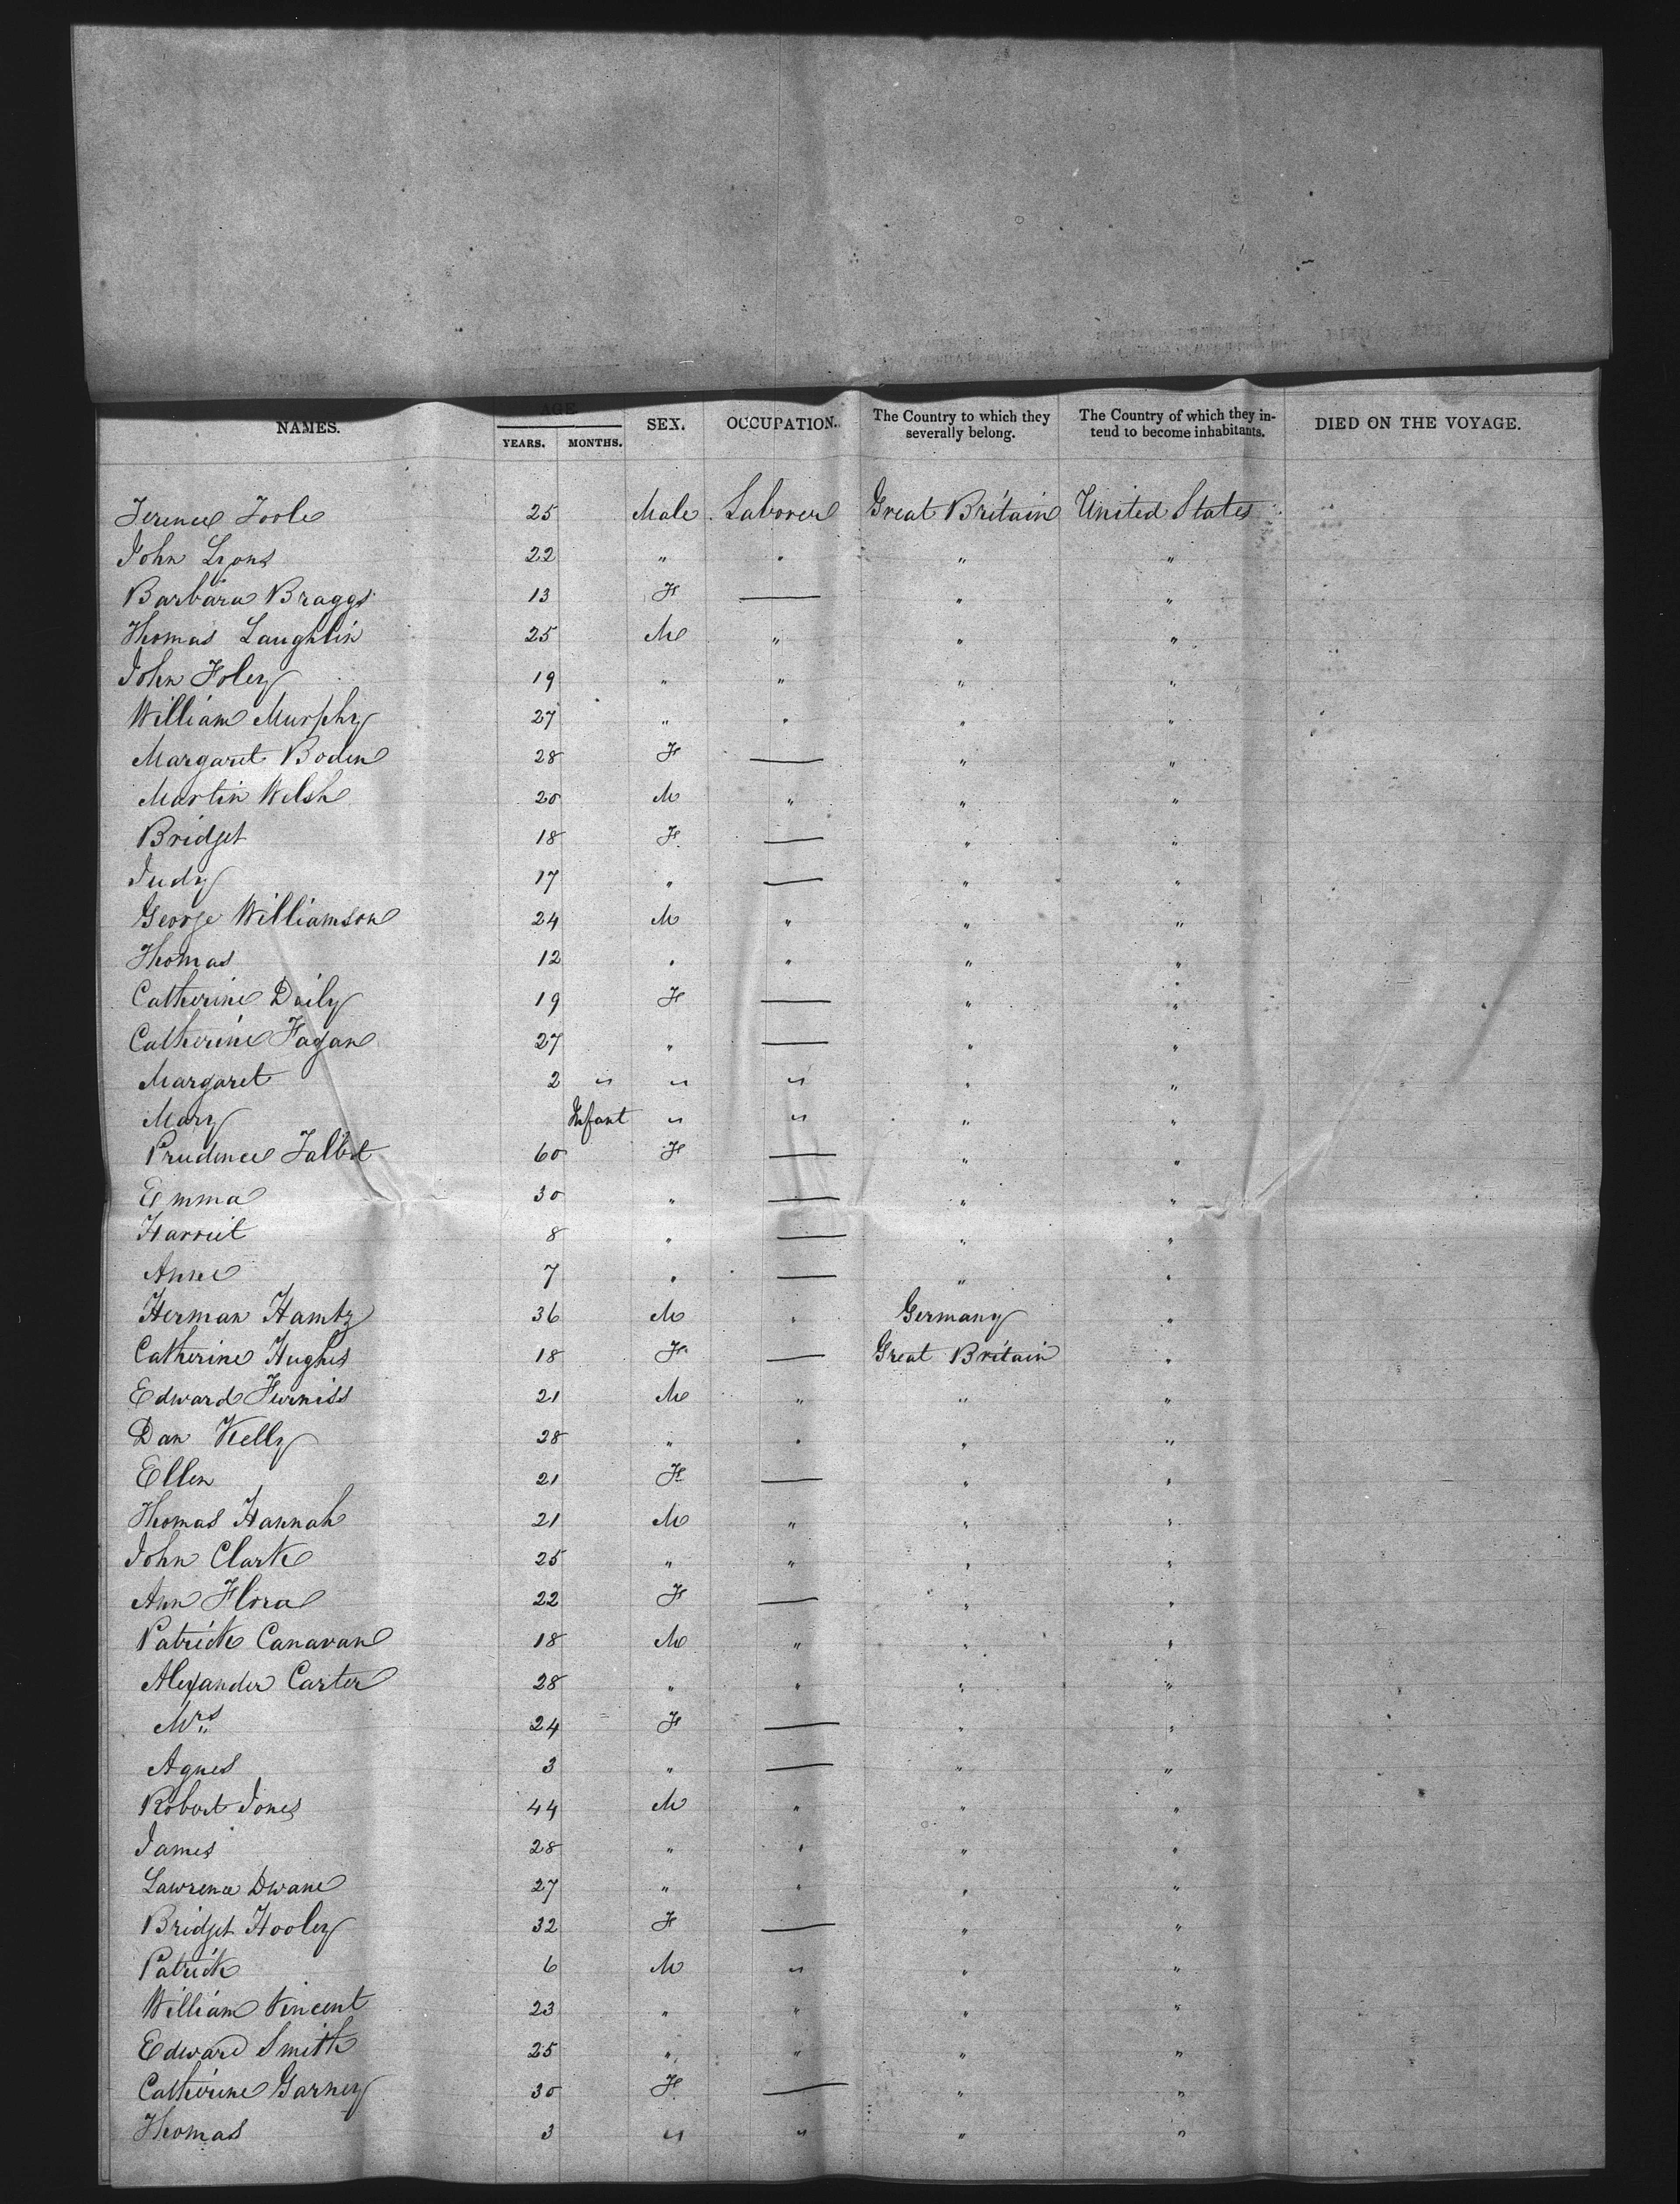 NAMES. AGE. SEX. OCCUPATION. The Country to which they severally belong. The Country of which they in-tend to become inhabitants. DIED ON THE VOYAGE.
YEARS. MONTHS.
Terence Toole 25 Male Laborer Great Britain United States
John Lyons 22 " " " "
Barbara Braggs 13 F — " "
Thomas Laughlin 25 M " " "
John Foley 19 " " " "
William Murphy 27 " " " "
Margaret Boden 28 F — " "
Martin Welsh 20 M " " "
Bridget 18 F — " "
Judy 17 " — " "
George Williamson 24 M " " "
Thomas 12 " " " "
Catherine Daily 19 F — " "
Catherine Fagan 27 " — " "
Margaret 2 " " " " "
Mary Infant " " " "
Prudence Talbot 60 F — " "
Emma 30 " — " "
Harriet 8 " — " "
Anne 7 " — " "
Herman Hamtz 36 M " Germany "
Catherine Hughes 18 F — Great Britain "
Edward Furniss 21 M " " "
Dan Kelly 28 " " " "
Ellen 21 F — " "
Thomas Hannah 21 M " " "
John Clark 25 " " " "
Ann Flora 22 F — " "
Patrick Canavan 18 M " " "
Alexander Carter 28 " " " "
Mrs 24 F — " "
Agnes 3 " — " "
Robert Jones 44 M " " "
James 28 " " " "
Lawrence Dwane 27 " " " "
Bridget Hooley 32 F — " "
Patrick 6 M " " "
William Vincent 23 " " " "
Edward Smith 25 " " " "
Catherine Garney 30 F — " "
Thomas 3 " " " "